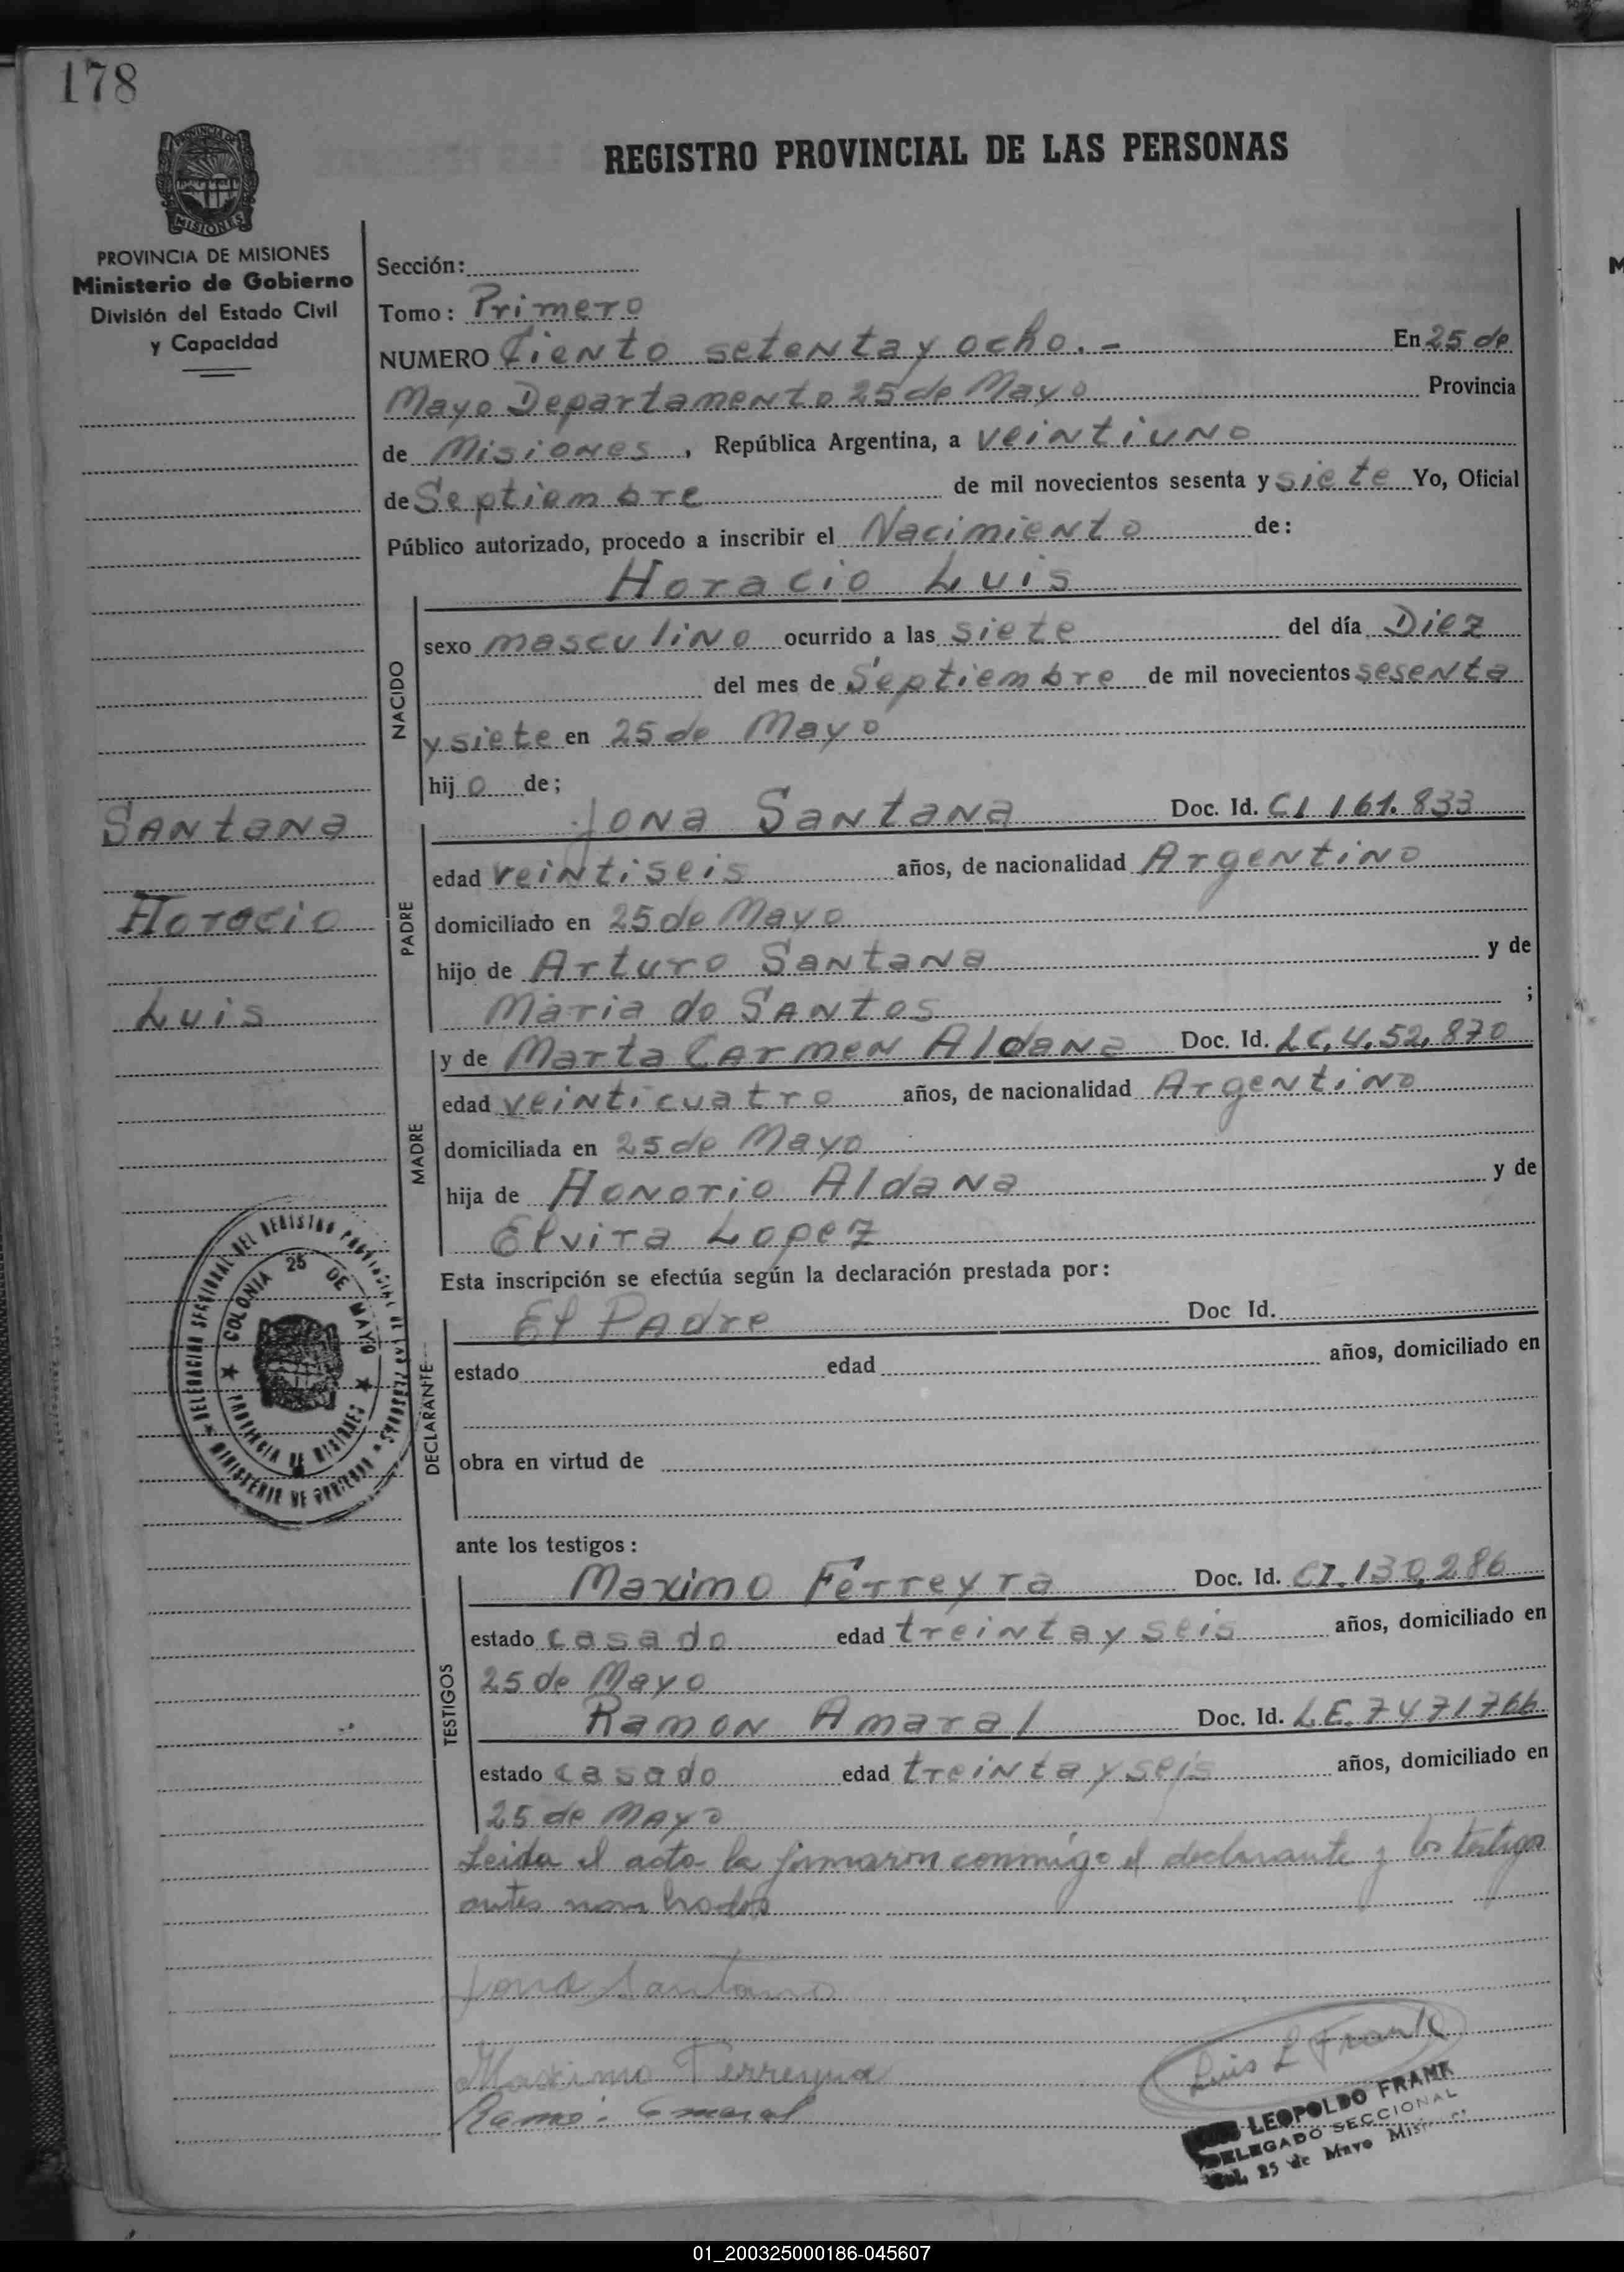 178
REGISTRO PROVINCIAL DE LAS PERSONAS
MISIONES
PROVINCIA DE MISIONES
Ministerio de Gobierno
División del Estado Civil
y Capacidad
Sección:
Tomo: Primero
NUMERO Ciento setenta y ocho.- En 25 de
Mayo Departamento 25 de Mayo Provincia
de Misiones, República Argentina, a veintiuno
de Septiembre de mil novecientos sesenta y siete Yo, Oficial
Público autorizado, procedo a inscribir el Nacimiento de:
Horacio Luis
NACIDO
sexo masculino ocurrido a las siete del día Diez
del mes de Septiembre de mil novecientos sesenta
y siete en 25 de Mayo
hijo de;
Santana
Horacio
Luis
PADRE
Jona Santana Doc. Id. CI 161.833
edad veintiseis años, de nacionalidad Argentino
domiciliado en 25 de Mayo
hijo de Arturo Santana y de
Maria do Santos ;
MADRE
y de Marta Carmen Aldana Doc. Id. LC.4.52.870
edad veinticuatro años, de nacionalidad Argentino
domiciliada en 25 de Mayo
hija de Honorio Aldana y de
Elvira Lopez
Esta inscripción se efectúa según la declaración prestada por:
DELEGACION SECCIONAL DEL REGISTRO PROVINCIAL DE LAS PERSONAS
MINISTERIO DE GOBIERNO
COLONIA 25 DE MAYO
PROVINCIA DE MISIONES
DECLARANTE
El Padre Doc Id.
estado edad años, domiciliado en
obra en virtud de
ante los testigos:
TESTIGOS
Maximo Ferreyra Doc. Id. CI.130,286
estado casado edad treinta y seis años, domiciliado en
25 de Mayo
Ramon Amaral Doc. Id. L.E.7471766
estado casado edad treinta y seis años, domiciliado en
25 de Mayo
Leida el acta la firmaron conmigo el declarante y los testigos
antes nombrados
Jona Santana
Maximo Ferreyra
Ramon Amaral
Luis L Frank
LUIS LEOPOLDO FRANK
DELEGADO SECCIONAL
Col. 25 de Mayo Misiones
01_200325000186-045607